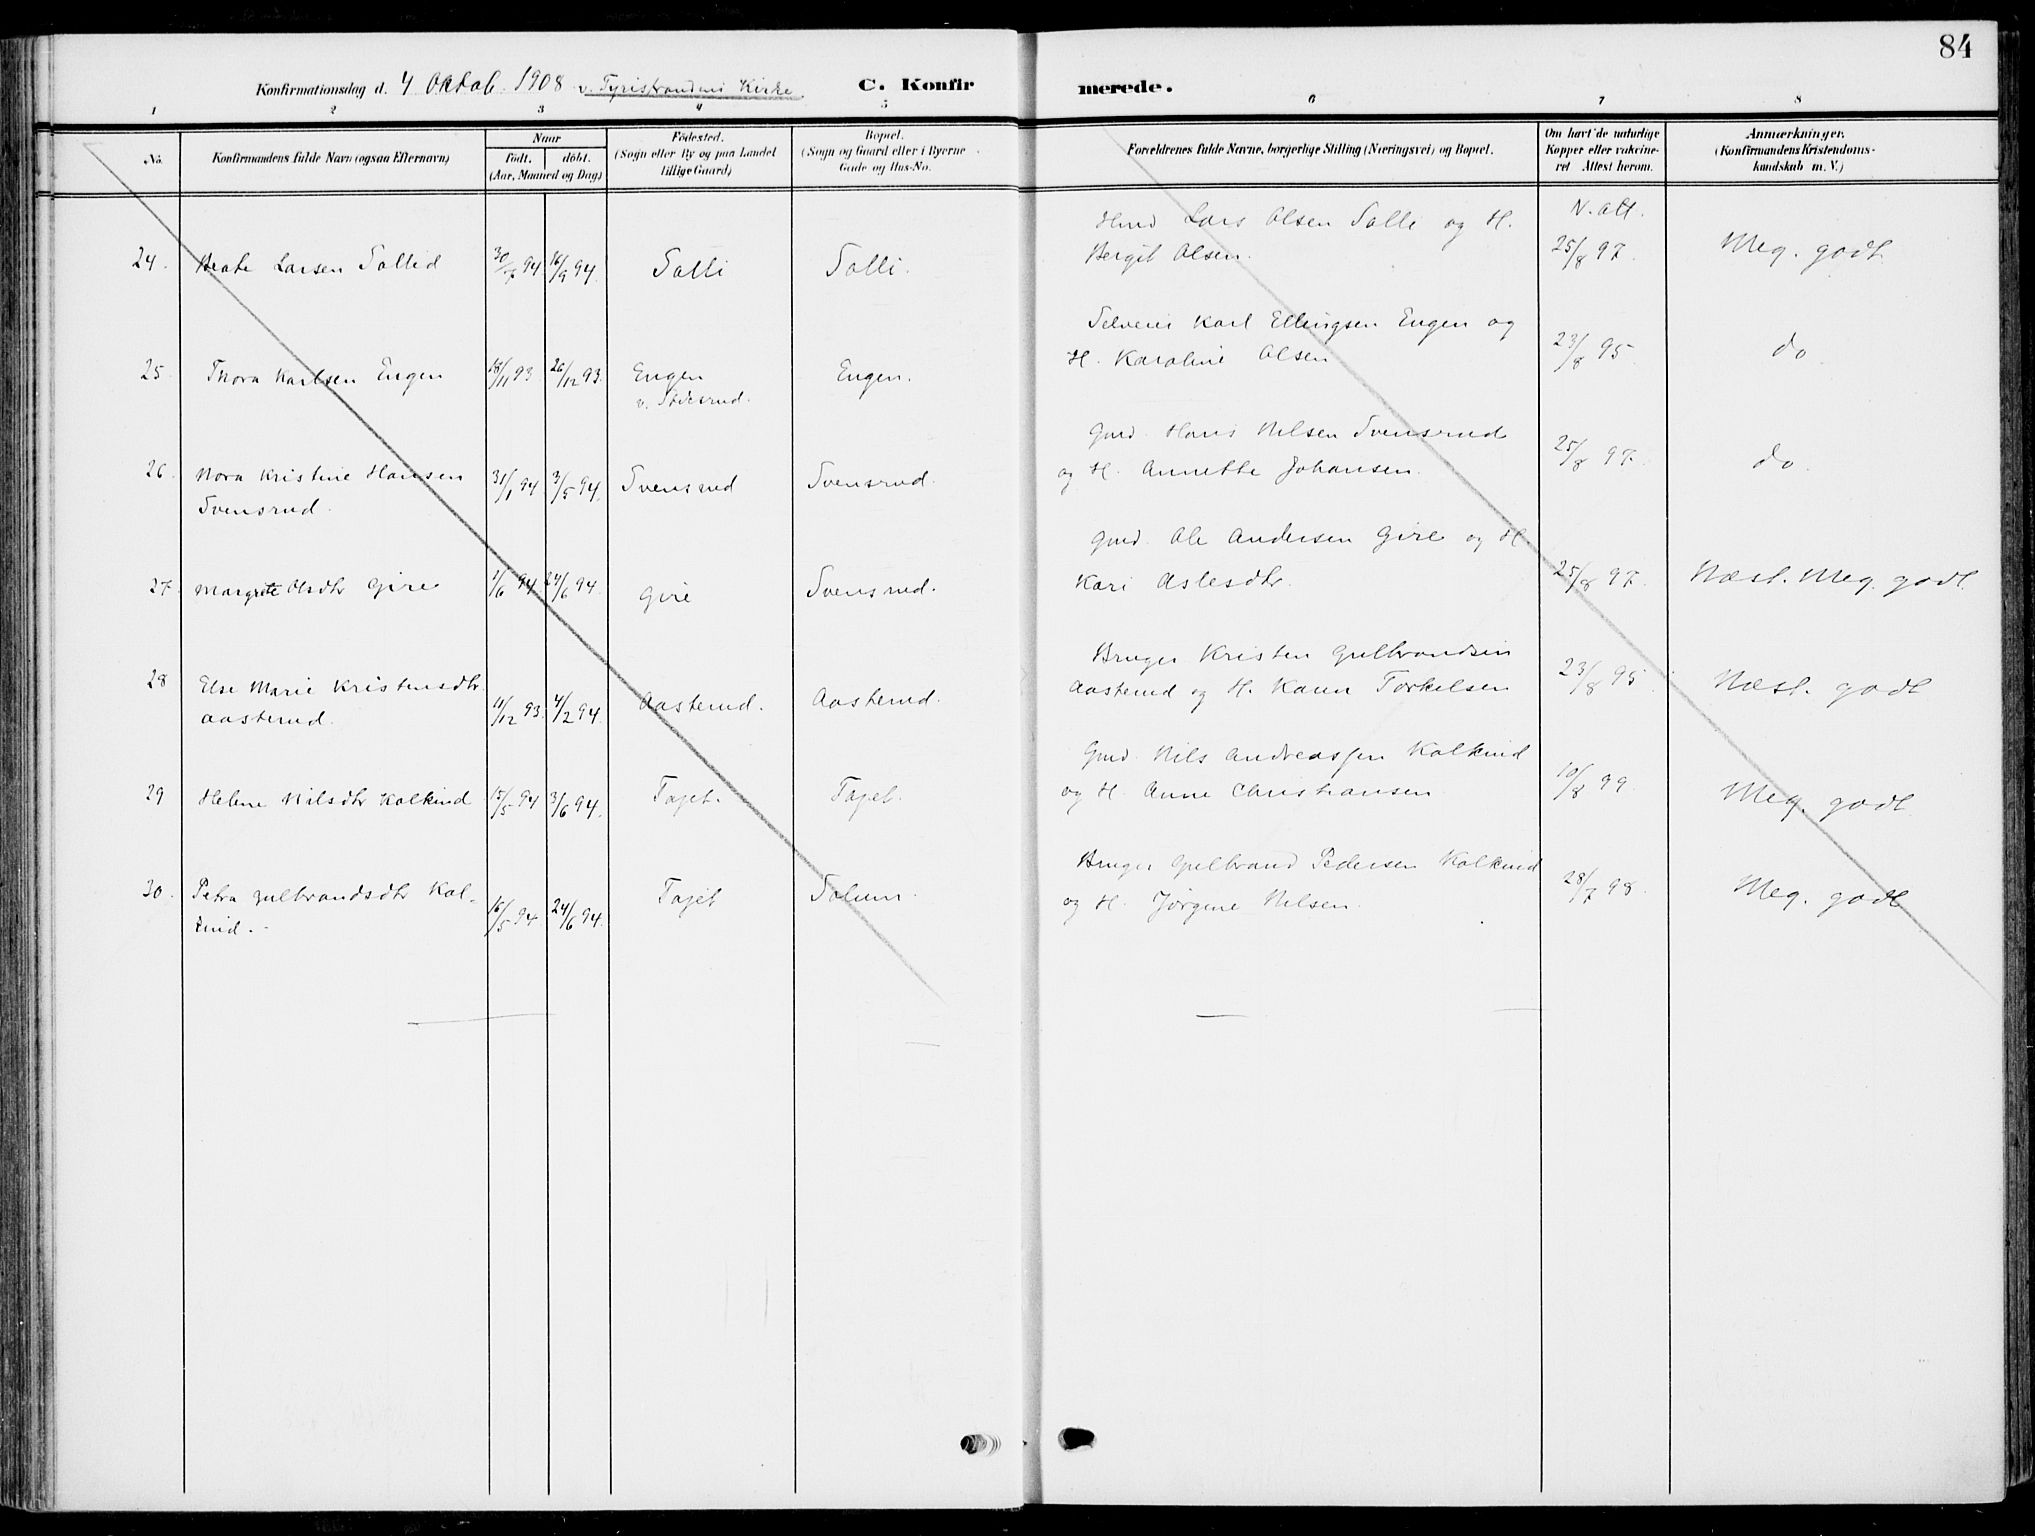 84
Konfirmationsdag d. 4 Oktob. 1908 v. Tyristrandens Kirke C. Konfirmerede.
1 2 3 4 5 6 7 8
No.
Konfirmandens fulde Navn (ogsaa Efternavn)
Naar
födt. döbt.
(Aar, Maaned og Dag)
Födested.
(Sogn eller By og paa Landet
tillige Gaard)
Bopæl.
(Sogn og Gaard eller i Byerne
Gade og Hus-No.
Forældrenes fulde Navne, borgerlige Stilling (Næringsvei) og Bopæl.
Om havt de naturlige
Kopper eller vakcine-
ret Attest herom.
Anmærkninger.
(Konfirmandens Kristendoms-
kundskab m. V.)
24. Beate Larsen Sollid 30/7 94 16/9 94. Solli Solli.
Lars Olsen Solli og H.
Bergit Olsen.
V. Att.
25/8 97. Meg. godt
25. Thora Karlsen Engen 18/11 93. 26/12 93. Engen
v. Stixrud. Engen.
Selveier Karl Ellingsen Engen og
H. Karoline Olsen
23/8 95. do
26. Nora Kristine Hansen
Svensrud. 31/1 94. 3/5 94. Svensrud Svensrud.
Gmd. Hans Nilsen Svensrud
og H. Annette Johansen.
25/8 97. do.
27. Margrete Olsdtr Gire 1/6 94 24/6 94. Gire Svensrud.
Gmd. Ole Andersen Gire og H
Kari Aslesdtr.
25/8 97. Næst. Meg. godt.
28 Else Marie Kristensdtr.
Aasterud. 11/12 93. 4/2 94. Aasterud. Aasterud.
Bruger Kristen Gulbrandsen
Aasterud og H. Karen Torkelsen
23/8 95. Næst. godt
29 Helene Nilsdtr Kolkind 15/5 94 3/6 94. Tajet. Tajet.
Gmd. Nils Andreassen Kolkind
og H. Anne Christiansen.
10/8 99. Meg. godt
30. Petra Gulbrandsdtr Kol-
kind. 16/5 94. 24/6 94. Tajet Solum.
Bruger Gulbrand Pedersen Kolkind
og H. Jørgine Nilsen.
28/7 98. Meg. godt